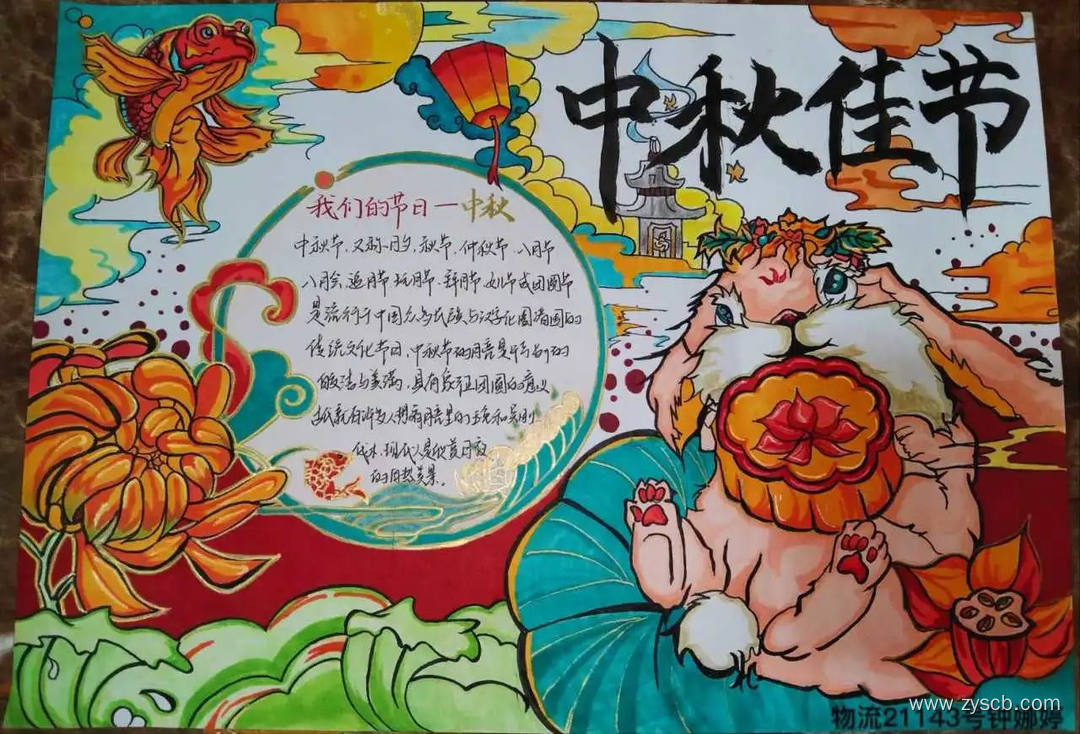 中秋佳节
我们的节日一中秋
中秋节,又称月夕,秋节,仲秋节,八月节
八月会,追月节,玩月节,拜月节,女儿节或团圆节
是流行于中国众多民族与汉字化圈诸国的
传统文化节日,中秋节的月亮是
美满,具有象征团圆的意义
和吴刚
现代人是欣赏月夜
的自然美景。
www.zyscb.com
物流21143号钟娜婷